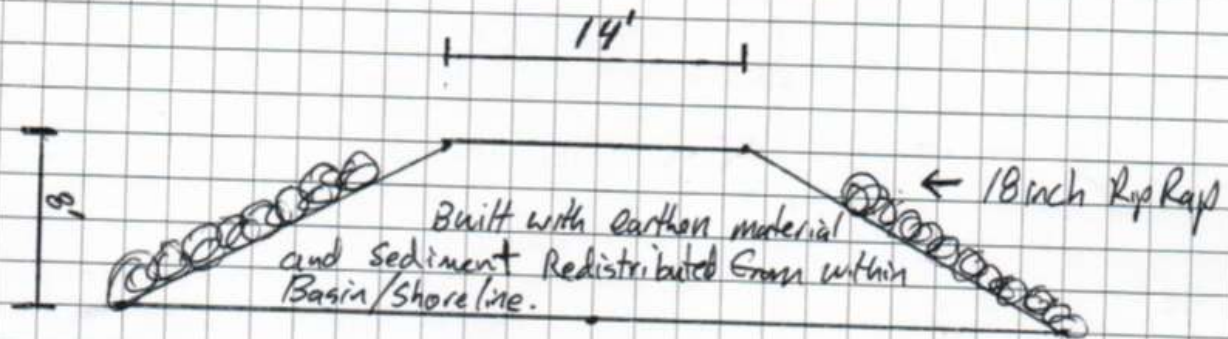 14'
8'
← 18 inch Rip Rap
Built with earthen material
and Sediment Redistributed From within
Basin/Shoreline.